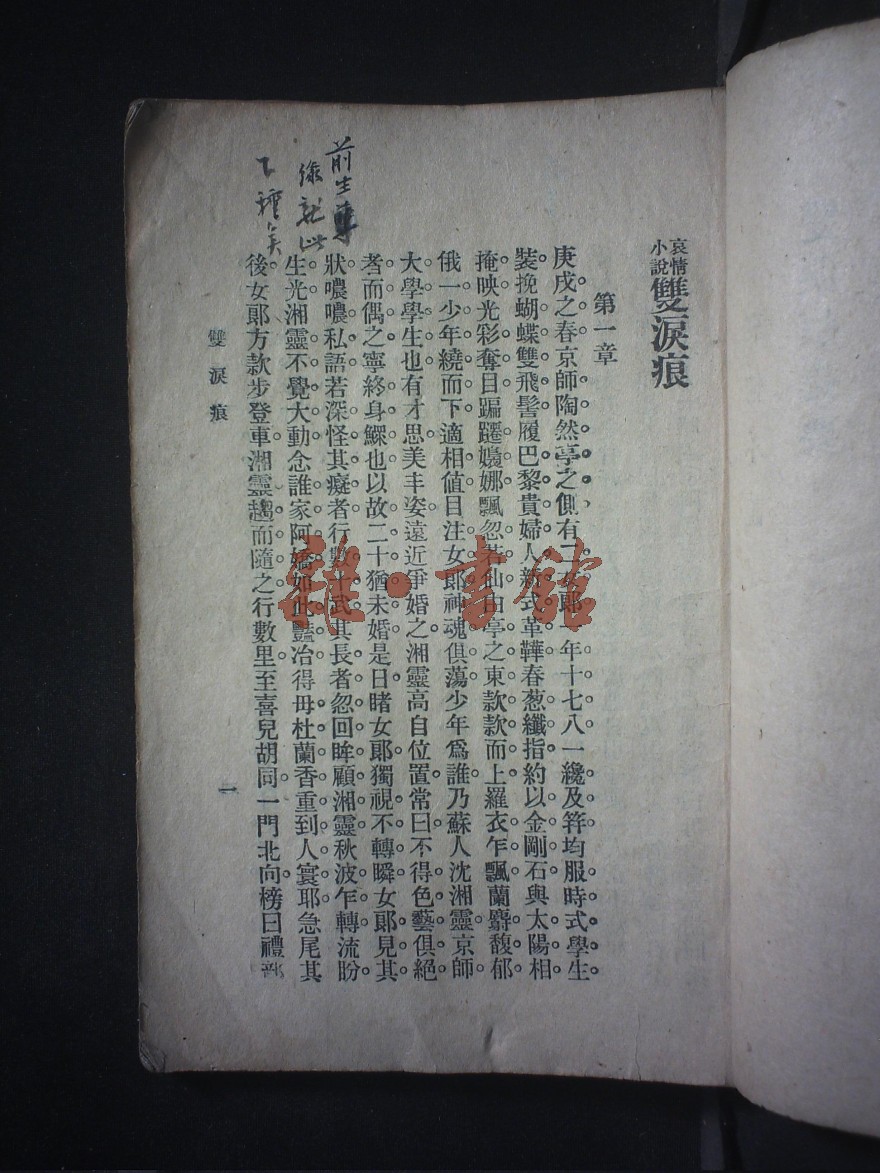 哀情小說雙淚痕
第一章
庚戌之春京師陶然亭之側有二女郎一年十七八一纔及笄均服時式學生
裝挽蝴蝶雙飛髻履巴黎貴婦人新式革鞾春葱纖指約以金剛石與太陽相
掩映光彩奪目蹁躚嬝娜飄忽若仙由亭之東款款而上羅衣乍飄蘭麝馥郁
俄一少年繞而下適相值目注女郎神魂俱蕩少年爲誰乃蘇人沈湘靈京師
大學學生也有才思美丰姿遠近爭婚之湘靈高自位置常曰不得色藝俱絕
者而偶之寧終身鰥也以故二十猶未婚是日睹女郎獨視不轉瞬女郎見其
狀噥噥私語若深怪其癡者行數十武其長者忽回眸顧湘靈秋波乍轉流盼
生光湘靈不覺大動念誰家阿嬌如此豔冶得毋杜蘭香重到人寰耶急尾其
後女郎方款步登車湘靈趨而隨之行數里至喜兒胡同一門北向榜曰禮部
雙淚痕
一
前生
緣
此
種矣
雜·書館